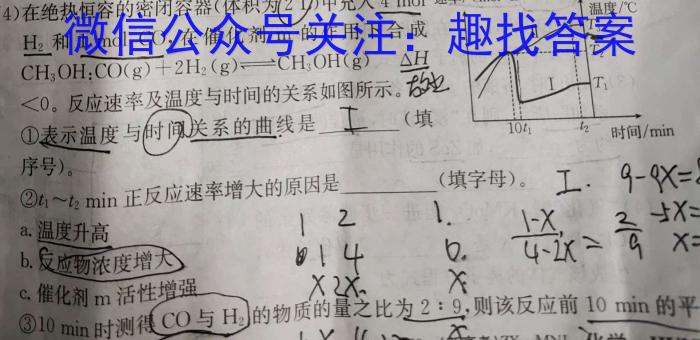 4)在绝热恒容的密闭容器(体积为2 L)中充入4 mol
H₂ 和
微信公众号关注:趣找答案
CH₃OH:CO(g)+2H₂(g)⇌CH₃OH(g) ΔH
<0。反应速率及温度与时间的关系如图所示。
温度/℃
I
T₁
10 t₁ t₂ 时间/min
①表示温度与时间关系的曲线是 I (填
序号)。
②t₁~t₂ min 正反应速率增大的原因是________(填字母)。
a. 温度升高
b. 反应物浓度增大
c. 催化剂 m 活性增强
③10 min 时测得 CO 与 H₂ 的物质的量之比为 2∶9,则该反应前 10 min 的平
1 2 1.
1 4 0.
x 2x x
I. 9-9x=
(1-x)/(4-2x) = 2/9
-5x=
x=